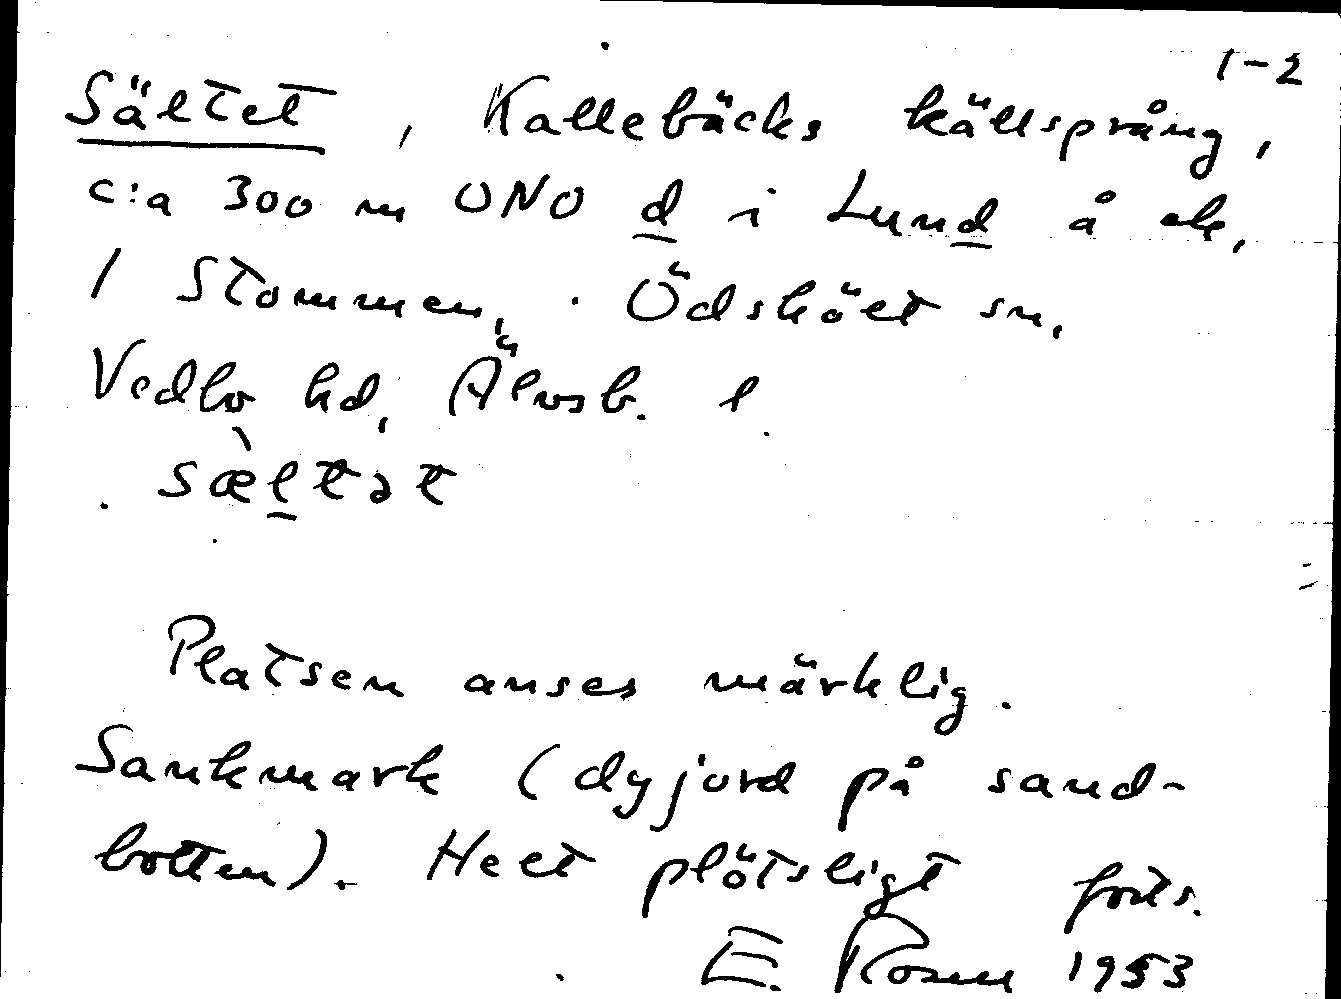 1-2
Sältet, Kallebäcks källsprång,
c:a 300 m ONO d i Lund å ek,
1 Stommen, Ödsköelt sn,
Vedbo hd, Älvsb. l
sæ̀ltət
Platsen anses märklig.
Sankmark (dyjord på sand-
botten). Helt plötsligt forts.
E. Rosen 1953